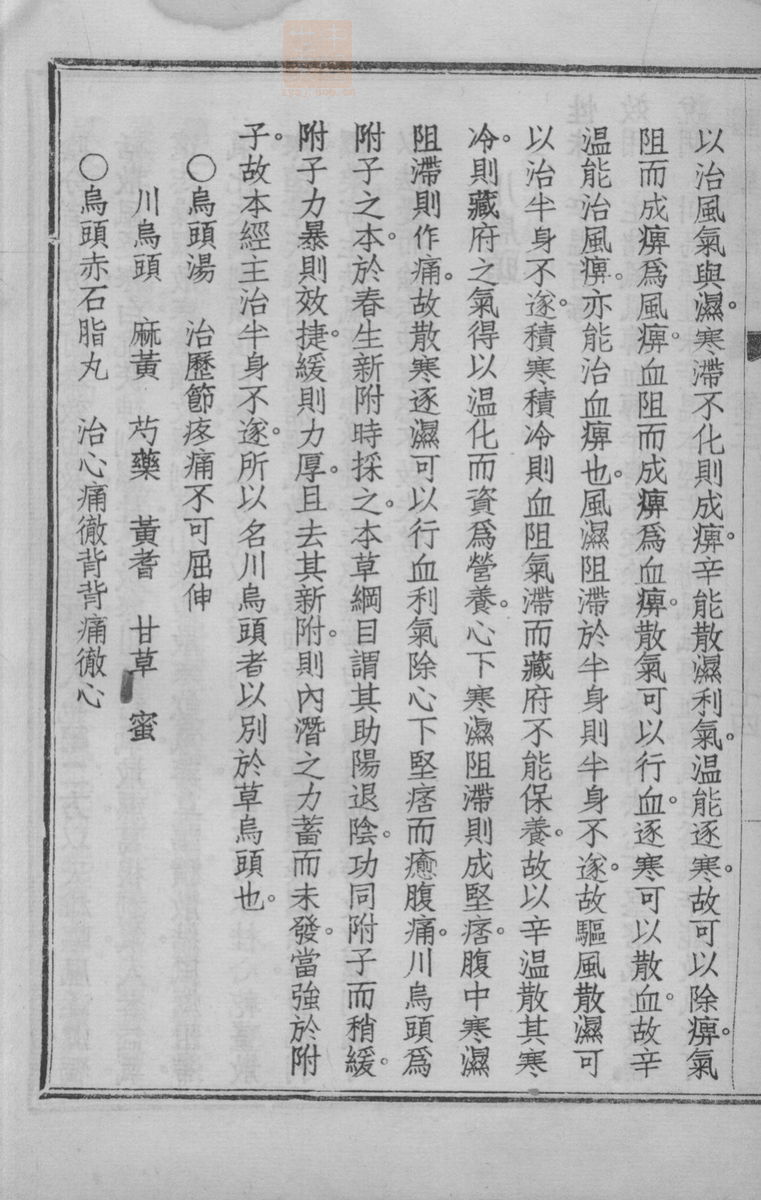 以治風氣與濕。寒滯不化則成痹。辛能散濕利氣。温能逐寒。故可以除痹。氣
阻而成痹爲風痹。血阻而成痹爲血痹。散氣可以行血。逐寒可以散血。故辛
温能治風痹。亦能治血痹也。風濕阻滯於半身則半身不遂。故驅風散濕可
以治半身不遂。積寒積冷則血阻氣滯而藏府不能保養。故以辛温散其寒
冷。則藏府之氣得以温化而資爲營養。心下寒濕阻滯則成堅痞。腹中寒濕
阻滯則作痛。故散寒逐濕可以行血利氣除心下堅痞而癒腹痛。川烏頭爲
附子之本。於春生新附時採之。本草綱目謂其助陽退陰。功同附子而稍緩。
附子力暴則效捷。緩則力厚。且去其新附。則內潛之力蓄而未發。當強於附
子。故本經主治半身不遂。所以名川烏頭者以別於草烏頭也。
〇烏頭湯　治歷節疼痛不可屈伸
川烏頭　麻黃　芍藥　黃耆　甘草　蜜
〇烏頭赤石脂丸　治心痛徹背背痛徹心